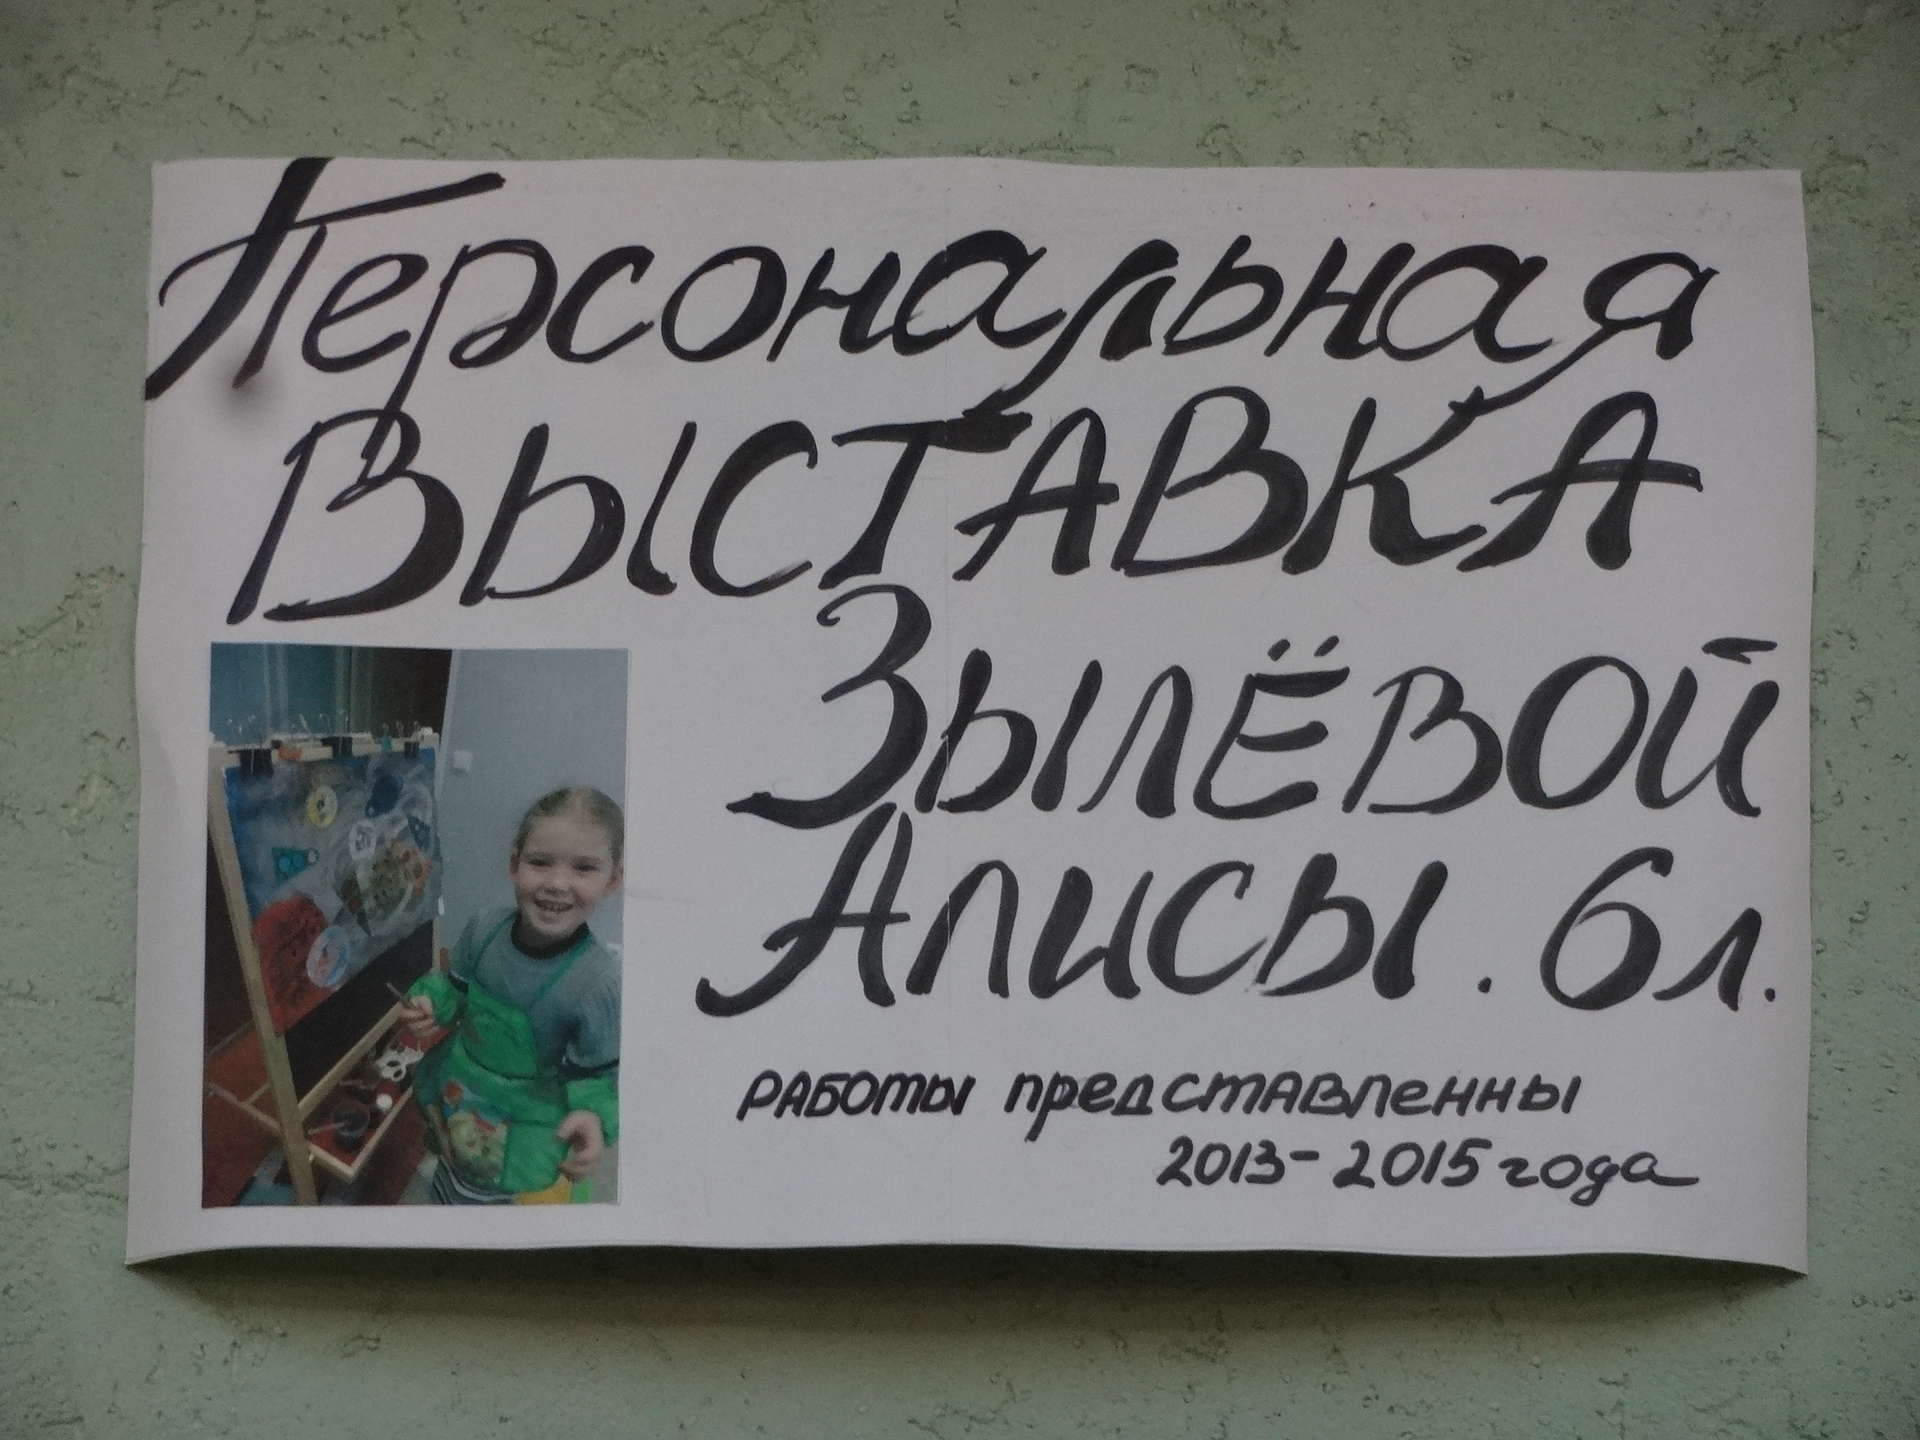 Персональная
Выставка
Зылёвой
Алисы. 6 л.
работы представленны
2013-2015 года